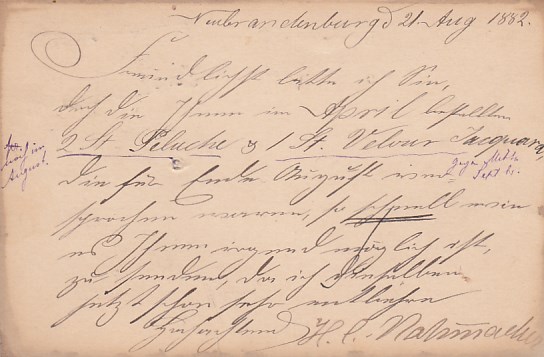 Neubrandenburg d 21. Aug 1882.
Freundlichst bitte ich Sie,
doch die Ihnen im April bestellten
2 St. Peluche & 1 St. Velour Jacquard,
noch im
August.
gegen Mitte
Sept.
die für Ende August ver-
sprochen waren, so schnell wie
es Ihnen irgend möglich ist,
zu senden, da ich dieselben
jetzt schon sehr entbehre
Hochachtend H. C.